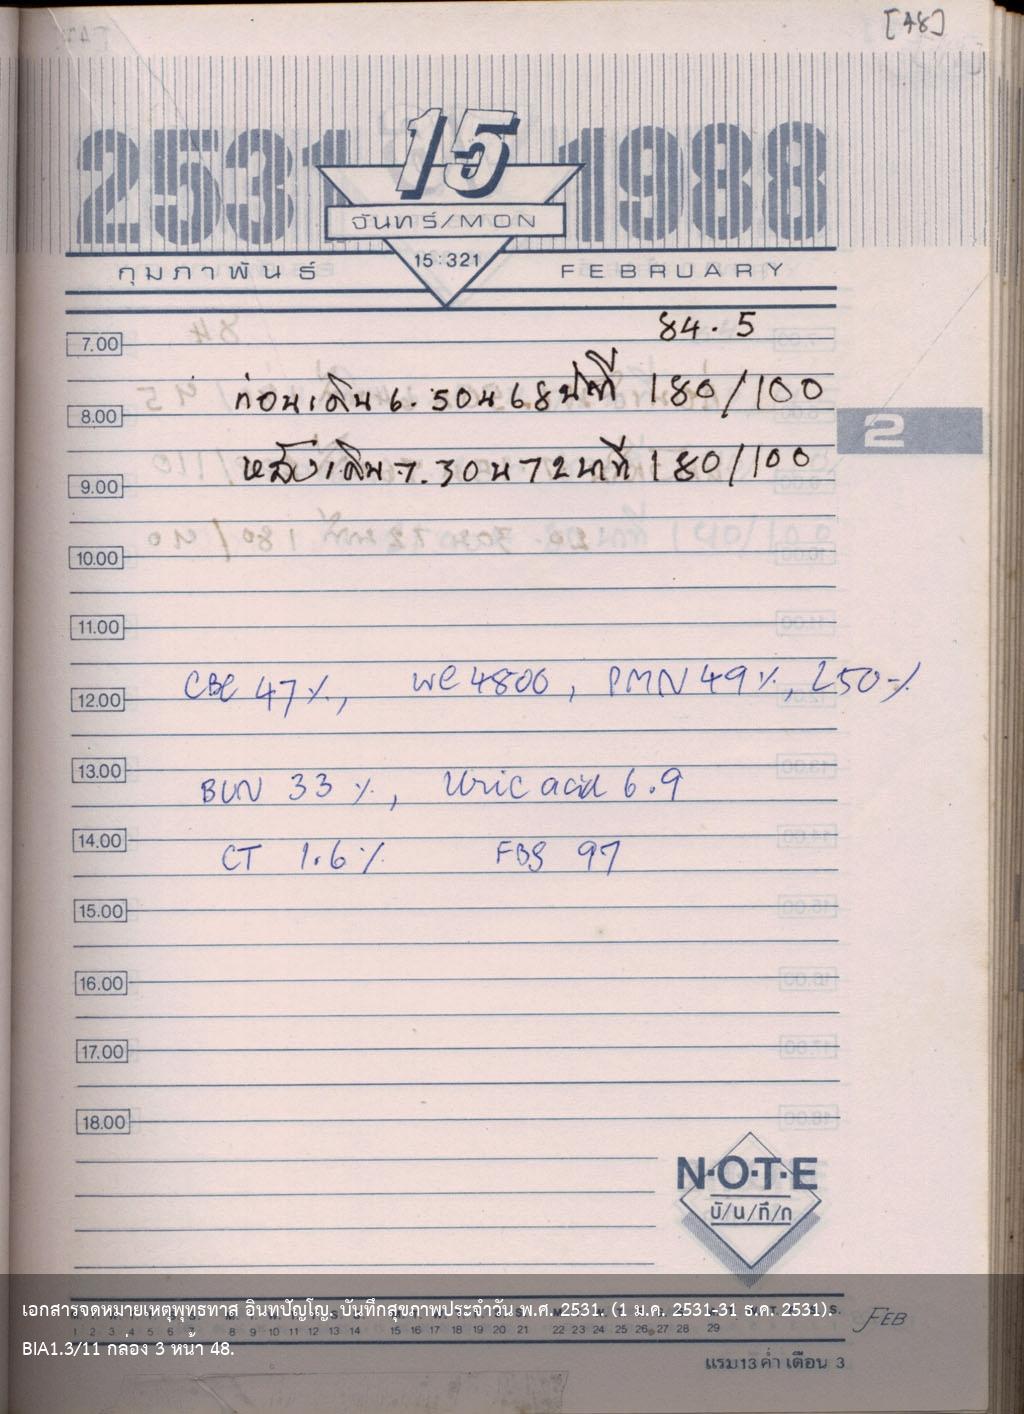 [48]
2531 15 1988
จันทร์/MON
15:321
กุมภาพันธ์ FEBRUARY
84.5
7.00
ก่อนเดิน 6.50 น 68 นาที 180/100
8.00
หลังเดิน 7.30 น 72 นาที 180/100
9.00
2
10.00
11.00
CBC 47%, WC 4800, PMN 49%, L50%
12.00
13.00
BUN 33%, Uric acid 6.9
14.00
CT 1.6% FBS 97
15.00
16.00
17.00
18.00
N·O·T·E
บั/น/ทึ/ก
เอกสารจดหมายเหตุพุทธทาส อินทปัญโญ. บันทึกสุขภาพประจำวัน พ.ศ. 2531. (1 ม.ค. 2531-31 ธ.ค. 2531).
1 2 3 4 5 6 7 8 9 10 11 12 13 14 15 16 17 18 19 20 21 22 23 24 25 26 27 28 29
FEB
BIA1.3/11 กล่อง 3 หน้า 48.
แรม 13 ค่ำ เดือน 3